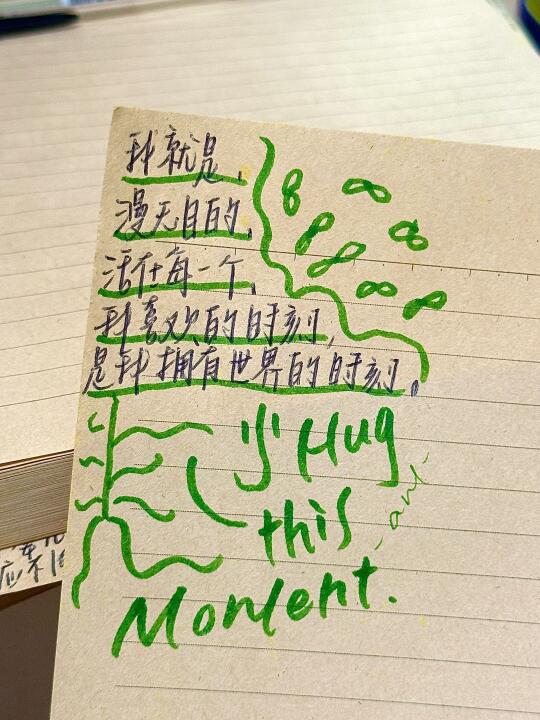 我就是,
漫无目的,
活在每一个,
我喜欢的时刻,
是我拥有世界的时刻。
Hug
this
Moment.